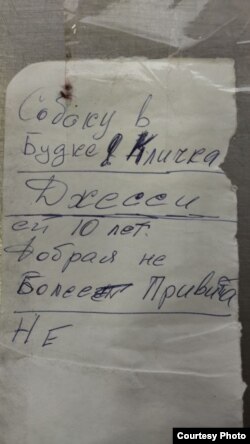 Собаку в
Будке Кличка
Джесси
ей 10 лет.
Добрая не
Болеет Привита
Не
Courtesy Photo